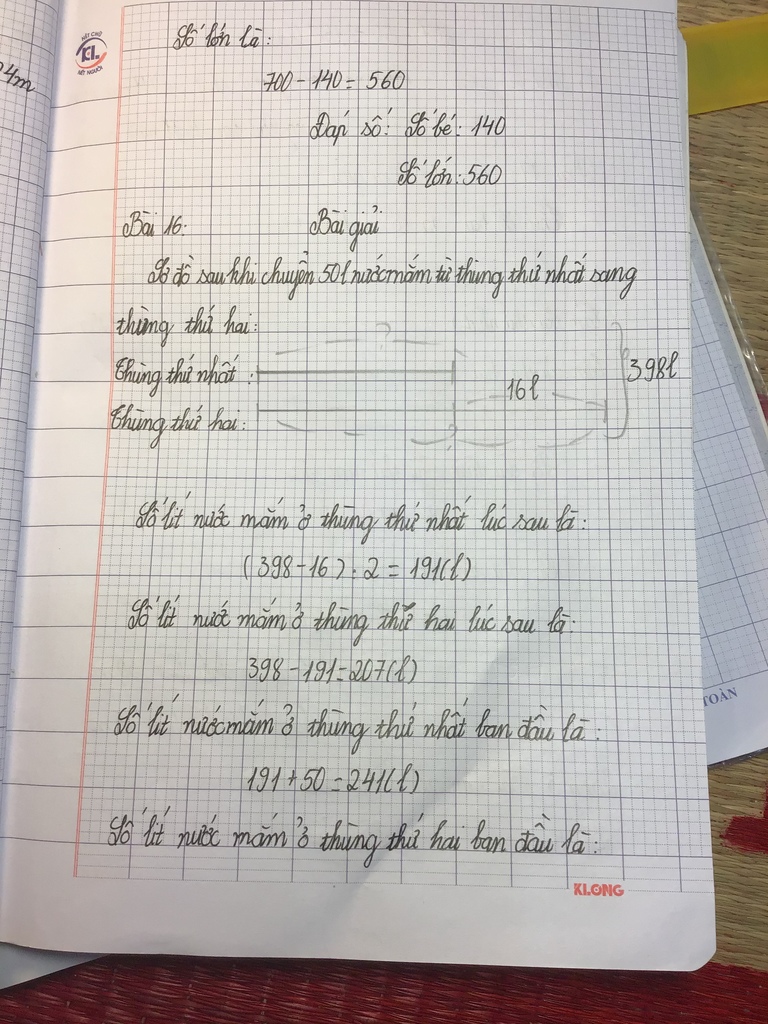 4m
NÉT CHỮ
KL
NẾT NGƯỜI
Số lớn là:
700 - 140 = 560
Đáp số: Số bé: 140
Số lớn: 560
Bài 16: Bài giải
Sơ đồ sau khi chuyển 50l nước mắm từ thùng thứ nhất sang
thùng thứ hai:
?
Thùng thứ nhất :
16l
398l
Thùng thứ hai:
?
Số lít nước mắm ở thùng thứ nhất lúc sau là:
(398 - 16) : 2 = 191(l)
Số lít nước mắm ở thùng thứ hai lúc sau là:
398 - 191 = 207(l)
Số lít nước mắm ở thùng thứ nhất ban đầu là:
191 + 50 = 241(l)
Số lít nước mắm ở thùng thứ hai ban đầu là:
KLONG
TOÀN